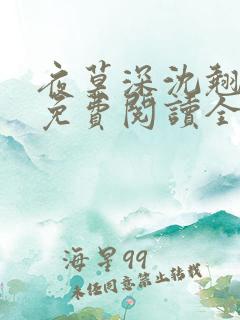 夜草深沈翘
免費閱讀全
海星99
未经同意禁止转载